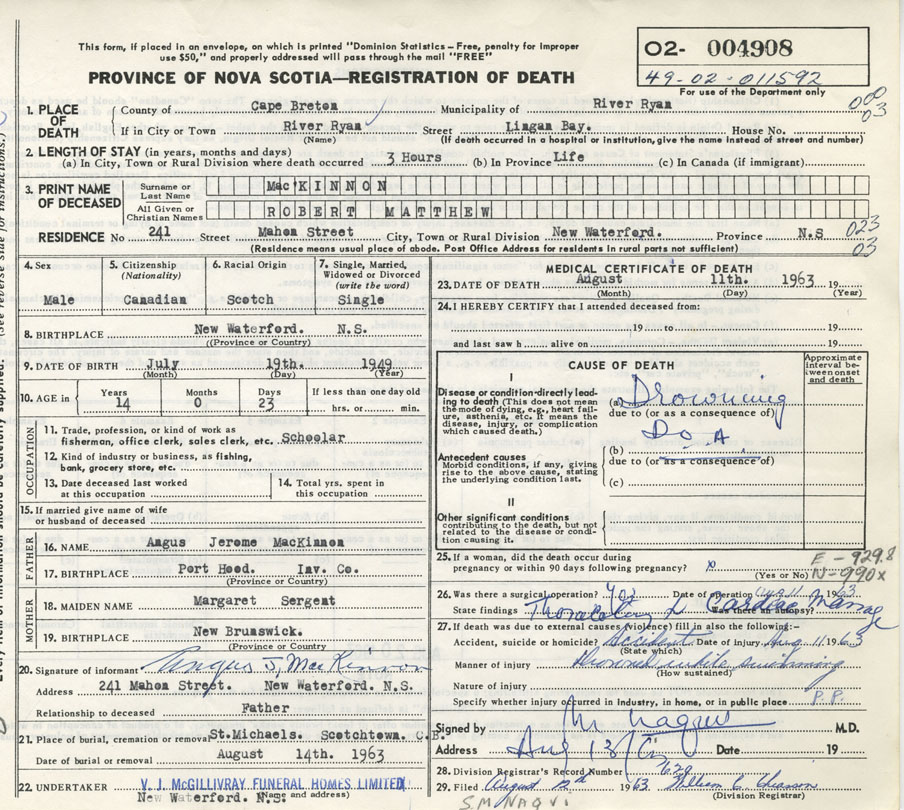 This form, if placed in an envelope, on which is printed "Dominion Statistics – Free, penalty for improper
use $50," and properly addressed will pass through the mail "FREE"
PROVINCE OF NOVA SCOTIA—REGISTRATION OF DEATH
O2- 004908
49-02-011592
For use of the Department only
1. PLACE OF DEATH
County of Cape Breton Municipality of River Ryan 000 03
If in City or Town River Ryan Street Lingan Bay. House No.
(Name) (If death occurred in a hospital or institution, give the name instead of street and number)
2. LENGTH OF STAY (in years, months and days)
(a) In City, Town or Rural Division where death occurred 3 Hours (b) In Province Life (c) In Canada (if immigrant)
3. PRINT NAME OF DECEASED
Surname or Last Name MacKINNON
All Given or Christian Names ROBERT MATTHEW
RESIDENCE No 241 Street Mahon Street City, Town or Rural Division New Waterford. Province N.S 023 03
(Residence means usual place of abode. Post Office Address for residents in rural parts not sufficient)
4. Sex Male
5. Citizenship (Nationality) Canadian
6. Racial Origin Scotch
7. Single, Married, Widowed or Divorced (write the word) Single
8. BIRTHPLACE New Waterford. N.S.
(Province or Country)
9. DATE OF BIRTH July 19th. 1949
(Month) (Day) (Year)
10. AGE in Years 14 Months 0 Days 23 If less than one day old hrs. or min.
OCCUPATION
11. Trade, profession, or kind of work as fisherman, office clerk, sales clerk, etc. Schoolar
12. Kind of industry or business, as fishing, bank, grocery store, etc.
13. Date deceased last worked at this occupation
14. Total yrs. spent in this occupation
15. If married give name of wife or husband of deceased
FATHER
16. NAME Angus Jerome MacKinnon
17. BIRTHPLACE Port Hood. Inv. Co.
(Province or Country)
MOTHER
18. MAIDEN NAME Margaret Sergent
19. BIRTHPLACE New Brunswick.
(Province or Country)
20. Signature of informant Angus J, MacKinnon
Address 241 Mahon Street. New Waterford. N.S.
Relationship to deceased Father
21. Place of burial, cremation or removal St.Michaels. Scotchtown. C.B.
Date of burial or removal August 14th. 1963
22. UNDERTAKER V. J. McGILLIVRAY FUNERAL HOMES LIMITED
New Waterford. N.S. (Name and address)
MEDICAL CERTIFICATE OF DEATH
23. DATE OF DEATH August 11th. 1963 19
(Month) (Day) (Year)
24. I HEREBY CERTIFY that I attended deceased from:
19 to 19
and last saw h alive on 19
CAUSE OF DEATH
Approximate interval between onset and death
I
Disease or condition directly leading to death (This does not mean the mode of dying, e.g., heart failure, asthenia, etc. It means the disease, injury, or complication which caused death.)
(a) Drowning
due to (or as a consequence of)
D O A
Antecedent causes
Morbid conditions, if any, giving rise to the above cause, stating the underlying condition last.
(b)
due to (or as a consequence of)
(c)
II
Other significant conditions contributing to the death, but not related to the disease or condition causing it.
25. If a woman, did the death occur during pregnancy or within 90 days following pregnancy? (Yes or No)
E - 929.8
N-990x
26. Was there a surgical operation? Yes Date of operation Aug 11 1963
State findings Thoracotomy & Cardiac Massage Was there an autopsy?
27. If death was due to external causes (violence) fill in also the following:-
Accident, suicide or homicide? Accident Date of injury Aug. 11 1963
(State which)
Manner of injury drowned while swimming
(How sustained)
Nature of injury
Specify whether injury occurred in industry, in home, or in public place P.P.
Signed by M. Naqvi M.D.
Address Aug 13/63 Date 19
28. Division Registrar's Record Number
29. Filed August 1963
(Division Registrar)
S M NAQVI